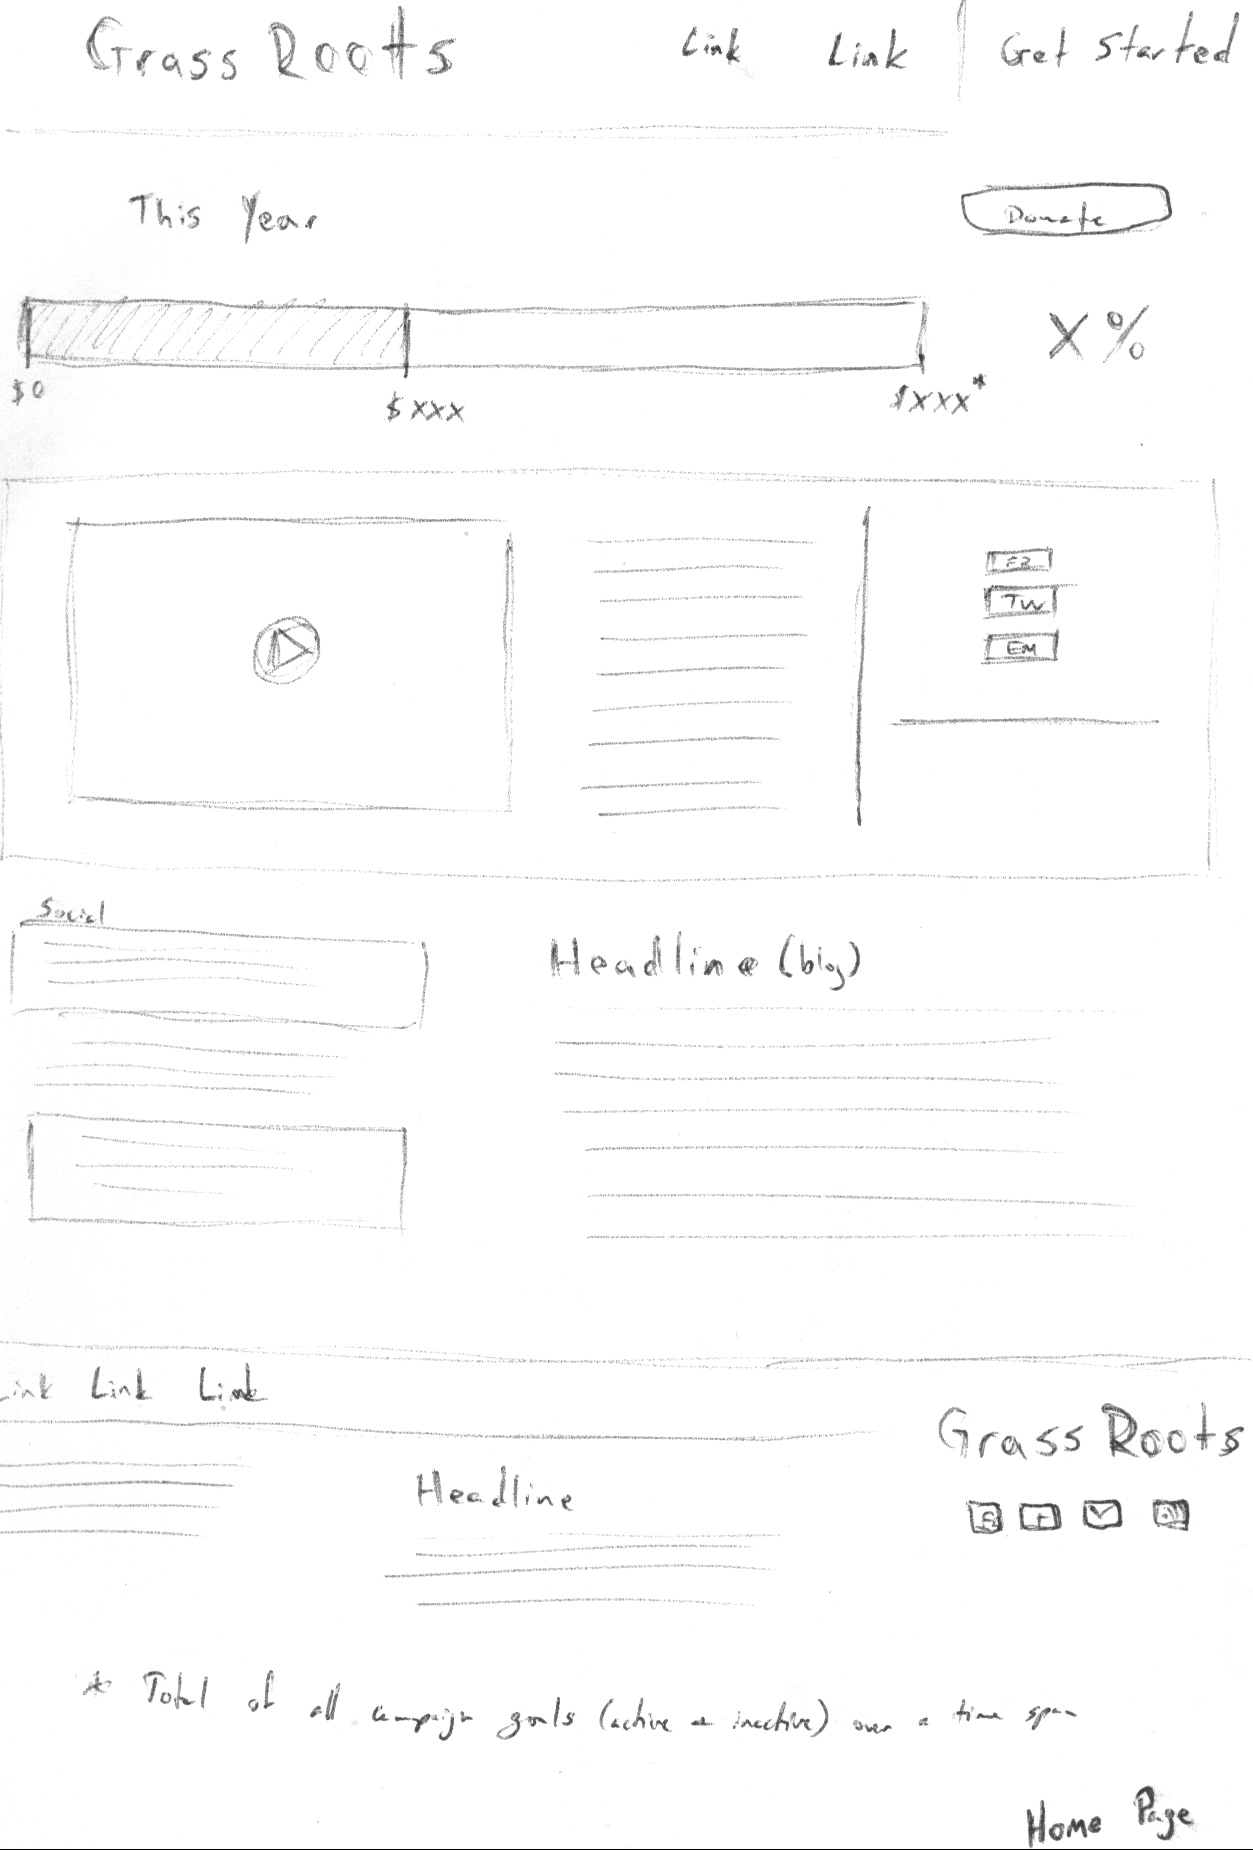 Grass Roots Link Link Get Started
This Year Donate
X %
$0 $xxx $xxx*
FB
TW
Em
Social
Headline (blog)
Link Link Link
Grass Roots
Headline
* Total of all campaign goals (active + inactive) over a time span
Home Page